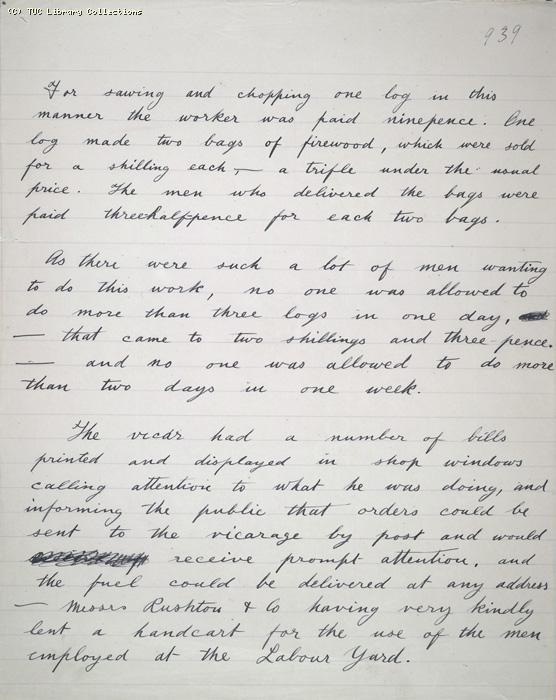 (C) TUC Library Collections
939
For sawing and chopping one log in this
manner the worker was paid ninepence. One
log made two bags of firewood, which were sold
for a shilling each, — a trifle under the usual
price. The men who delivered the bags were
paid threehalfpence for each two bags.
As there were such a lot of men wanting
to do this work, no one was allowed to
do more than three logs in one day,
— that came to two shillings and three-pence.
— and no one was allowed to do more
than two days in one week.
The vicar had a number of bills
printed and displayed in shop windows
calling attention to what he was doing, and
informing the public that orders could be
sent to the vicarage by post and would
receive prompt attention, and
the fuel could be delivered at any address
— Messrs Rushton & Co having very kindly
lent a handcart for the use of the men
employed at the Labour Yard.